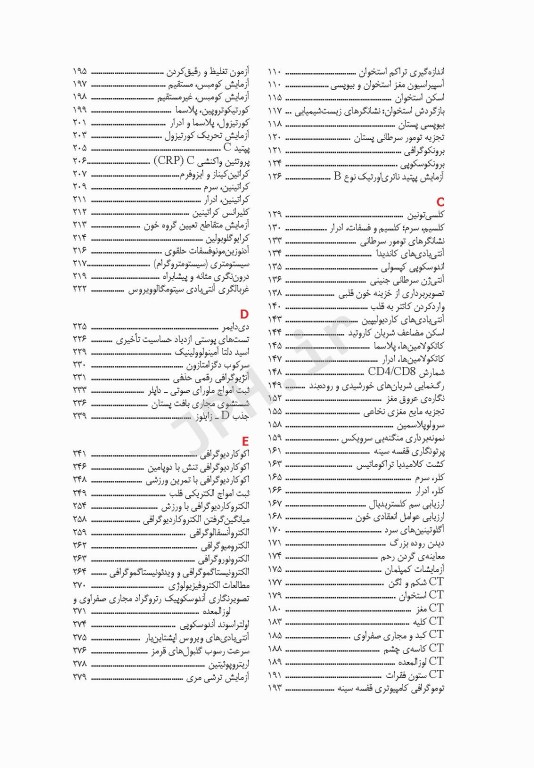 اندازه‌گیری تراکم استخوان ۱۱۰
آسپیراسیون مغز استخوان و بیوپسی ۱۱۰
اسکن استخوان ۱۱۵
بازگردش استخوان؛ نشانگرهای زیست‌شیمیایی ۱۱۷
بیوپسی پستان ۱۱۸
تجزیه تومور سرطانی پستان ۱۲۰
برونکوگرافی ۱۲۱
برونکوسکوپی ۱۲۴
آزمایش پپتید ناتری‌اورتیک نوع B ۱۲۶
C
کلسی‌تونین ۱۲۹
کلسیم، سرم؛ کلسیم و فسفات، ادرار ۱۳۰
نشانگرهای تومور سرطانی ۱۳۳
آنتی‌بادی‌های کاندیدا ۱۳۴
اندوسکوپی کپسولی ۱۳۵
آنتی‌ژن سرطانی جنینی ۱۳۶
تصویربرداری از خزینه خون قلبی ۱۳۸
واردکردن کاتتر به قلب ۱۴۰
آنتی‌بادی‌های کاردیولیپین ۱۴۳
اسکن مضاعف شریان کاروتید ۱۴۴
کاتکولامین‌ها، پلاسما ۱۴۵
کاتکولامین‌ها، ادرار ۱۴۷
شمارش CD4/CD8 ۱۴۸
رگ‌نمایی شریان‌های خورشیدی و روده‌بند ۱۴۹
نگاره‌ی عروق مغز ۱۵۲
تجزیه مایع مغزی نخاعی ۱۵۵
سرولوپلاسمین ۱۵۸
نمونه‌برداری منگنه‌یی سرویکس ۱۵۹
پرتونگاری قفسه سینه ۱۶۱
کشت کلامیدیا تراکوماتیس ۱۶۳
کلر، سرم ۱۶۵
کلر، ادرار ۱۶۶
ارزیابی سم کلستریدیال ۱۶۷
ارزیابی عوامل انعقادی خون ۱۶۸
آگلوتینین‌های سرد ۱۷۰
دیدن روده بزرگ ۱۷۱
معاینه‌ی گردن رحم ۱۷۴
آزمایشات کمپلمان ۱۷۵
CT شکم و لگن ۱۷۷
CT استخوان ۱۷۹
CT مغز ۱۸۰
CT کلیه ۱۸۳
CT کبد و مجاری صفراوی ۱۸۵
CT کاسه‌ی چشم ۱۸۸
CT لوزالمعده ۱۸۹
CT ستون فقرات ۱۹۱
توموگرافی کامپیوتری قفسه سینه ۱۹۳
آزمون تغلیظ و رقیق‌کردن ۱۹۵
آزمایش کومبس، مستقیم ۱۹۷
آزمایش کومبس، غیرمستقیم ۱۹۸
کورتیکوتروپین، پلاسما ۱۹۹
کورتیزول، پلاسما و ادرار ۲۰۱
آزمایش تحریک کورتیزول ۲۰۳
پپتید C ۲۰۵
پروتئین واکنشی C (CRP) ۲۰۶
کراتین‌کیناز و ایزوفرم ۲۰۷
کراتینین، سرم ۲۰۹
کراتینین، ادرار ۲۱۱
کلیرانس کراتینین ۲۱۲
آزمایش متقاطع تعیین گروه خون ۲۱۳
کرایوگلوبولین ۲۱۴
آدنوزین‌مونوفسفات حلقوی ۲۱۶
سیستومتری (سیستومتروگرام) ۲۱۷
درون‌نگری مثانه و پیشابراه ۲۱۹
غربالگری آنتی‌بادی سیتومگالوویروس ۲۲۲
D
دی‌دایمر ۲۲۵
تست‌های پوستی ازدیاد حساسیت تأخیری ۲۲۶
اسید دلتا آمینولوولینیک ۲۲۹
سرکوب دگزامتازون ۲۳۰
آنژیوگرافی رقمی حذفی ۲۳۱
ثبت امواج ماورای صوتی ـ داپلر ۲۳۳
شستشوی مجاری بافت پستان ۲۳۶
جذب D ـ زایلوز ۲۳۹
E
اکوکاردیوگرافی ۲۴۱
اکوکاردیوگرافی تنش با دوپامین ۲۴۶
اکوکاردیوگرافی با تمرین ورزشی ۲۴۸
ثبت امواج الکتریکی قلب ۲۴۹
الکتروکاردیوگرافی با ورزش ۲۵۴
میانگین‌گرفتن الکتروکاردیوگرافی ۲۵۸
الکتروآنسفالوگرافی ۲۵۹
الکترومیوگرافی ۲۶۲
الکترونوروگرافی ۲۶۳
الکترونیستاگموگرافی و ویدئونیستاگموگرافی ۲۶۴
مطالعات الکتروفیزیولوژی ۲۷۰
تصویرنگاری آندوسکوپیک رتروگراد مجاری صفراوی و
لوزالمعده ۲۷۱
اولتراسوند آندوسکوپی ۲۷۴
آنتی‌بادی‌های ویروس اپشتاین‌بار ۲۷۵
سرعت رسوب گلبول‌های قرمز ۲۷۶
اریتروپوئیتین ۲۷۸
آزمایش ترشی مری ۲۷۹